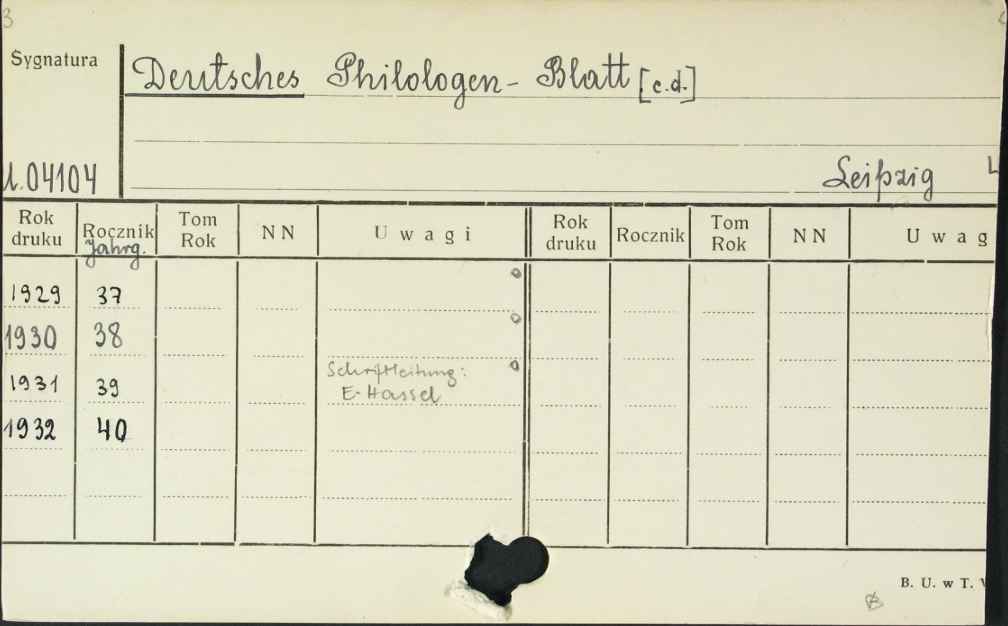 3
Sygnatura
Deutsches Philologen-Blatt [c.d.]
04104
Leipzig
L
Rok druku Rocznik Jahrg. Tom Rok NN Uwagi Rok druku Rocznik Tom Rok NN Uwag
1929 37
1930 38
1931 39 Schriftleitung:
E. Hassel
1932 40
B. U. w T.